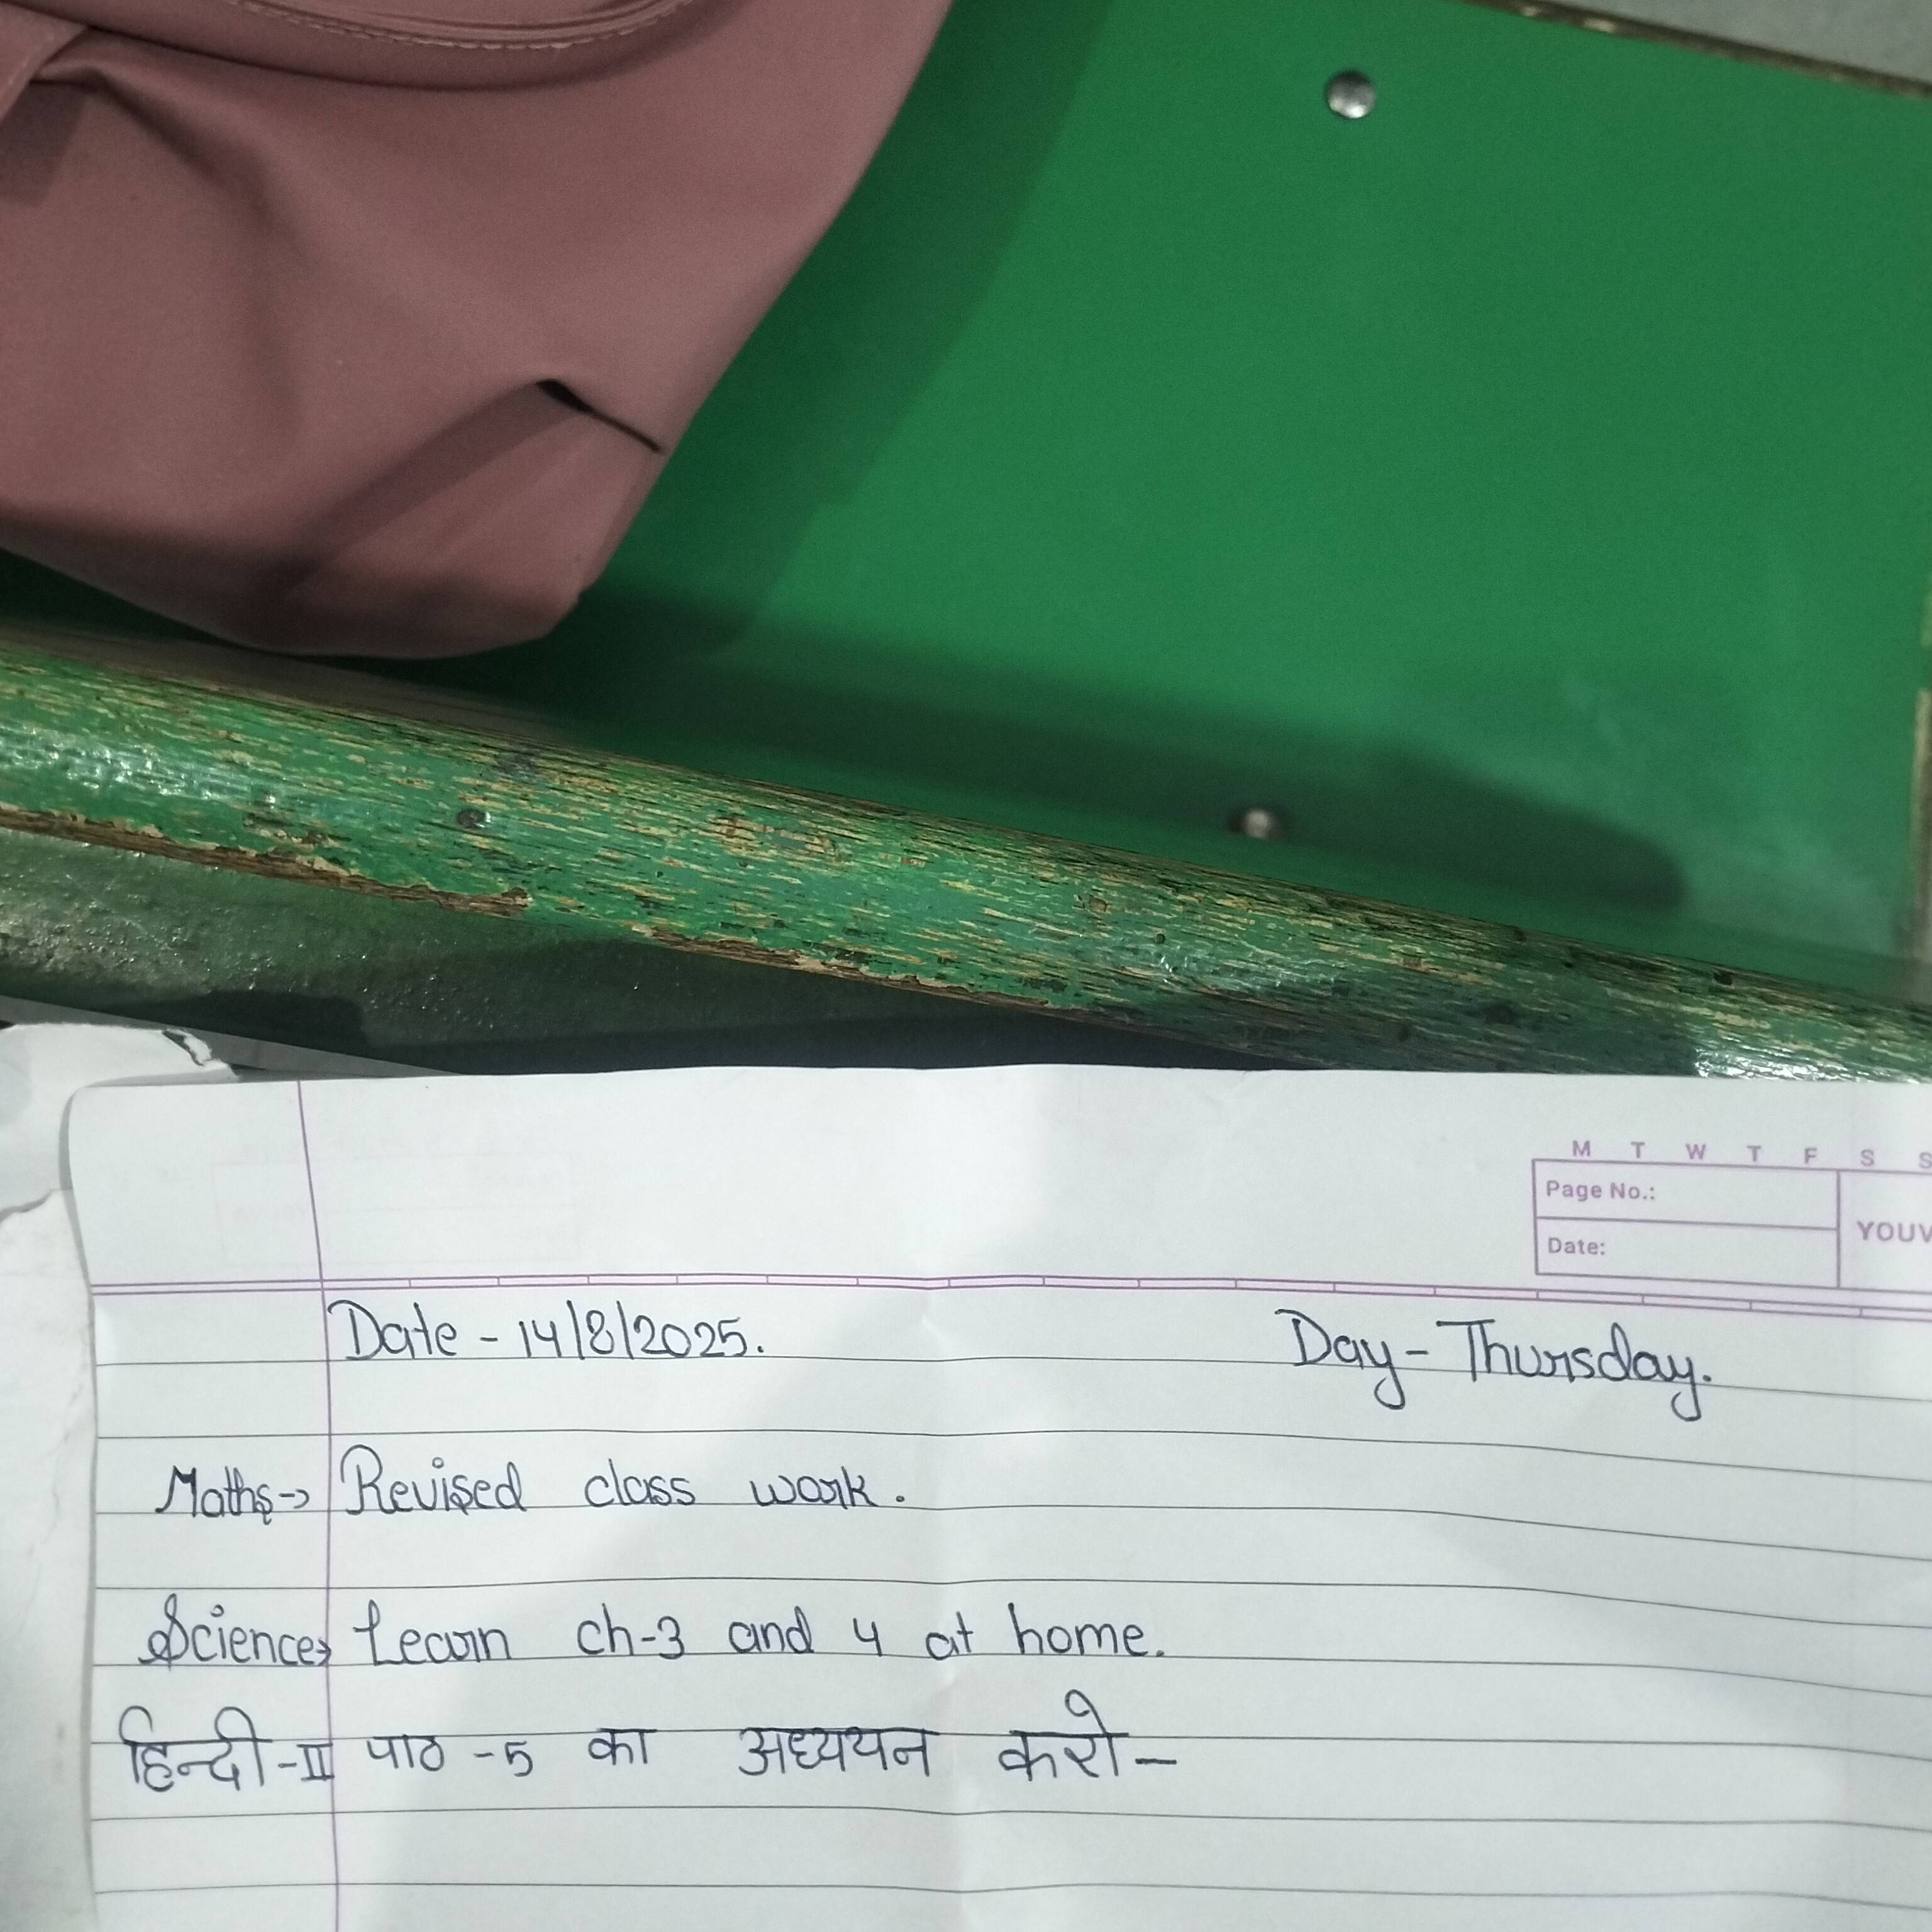 M T W T F S S
Page No.:
Date:
YOUV
Date - 14/8/2025. Day - Thursday.
Maths -> Revised class work.
Science -> Learn ch-3 and 4 at home.
हिन्दी-II पाठ -5 का अध्ययन करो-